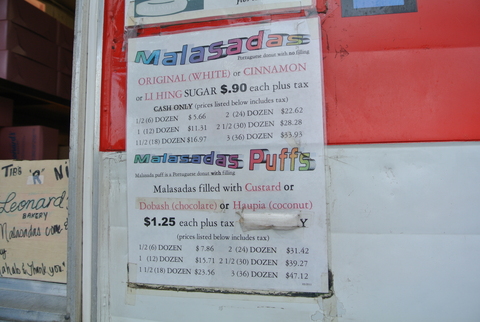 Malasadas
Portuguese donut with no filling
ORIGINAL (WHITE) or CINNAMON
or LI HING SUGAR $.90 each plus tax
CASH ONLY (prices listed below includes tax)
1/2 (6) DOZEN $ 5.66 2 (24) DOZEN $22.62
1 (12) DOZEN $11.31 2 1/2 (30) DOZEN $28.28
1 1/2 (18) DOZEN $16.97 3 (36) DOZEN $33.93
Malasadas Puffs
Malasada puff is a Portuguese donut with filling
Malasadas filled with Custard or
Dobash (chocolate) or Haupia (coconut)
$1.25 each plus tax Y
(prices listed below includes tax)
1/2 (6) DOZEN $ 7.86 2 (24) DOZEN $31.42
1 (12) DOZEN $15.71 2 1/2 (30) DOZEN $39.27
1 1/2 (18) DOZEN $23.56 3 (36) DOZEN $47.12
TIPS 'R' NI
Leonard
BAKERY
Malasadas
Thank you"